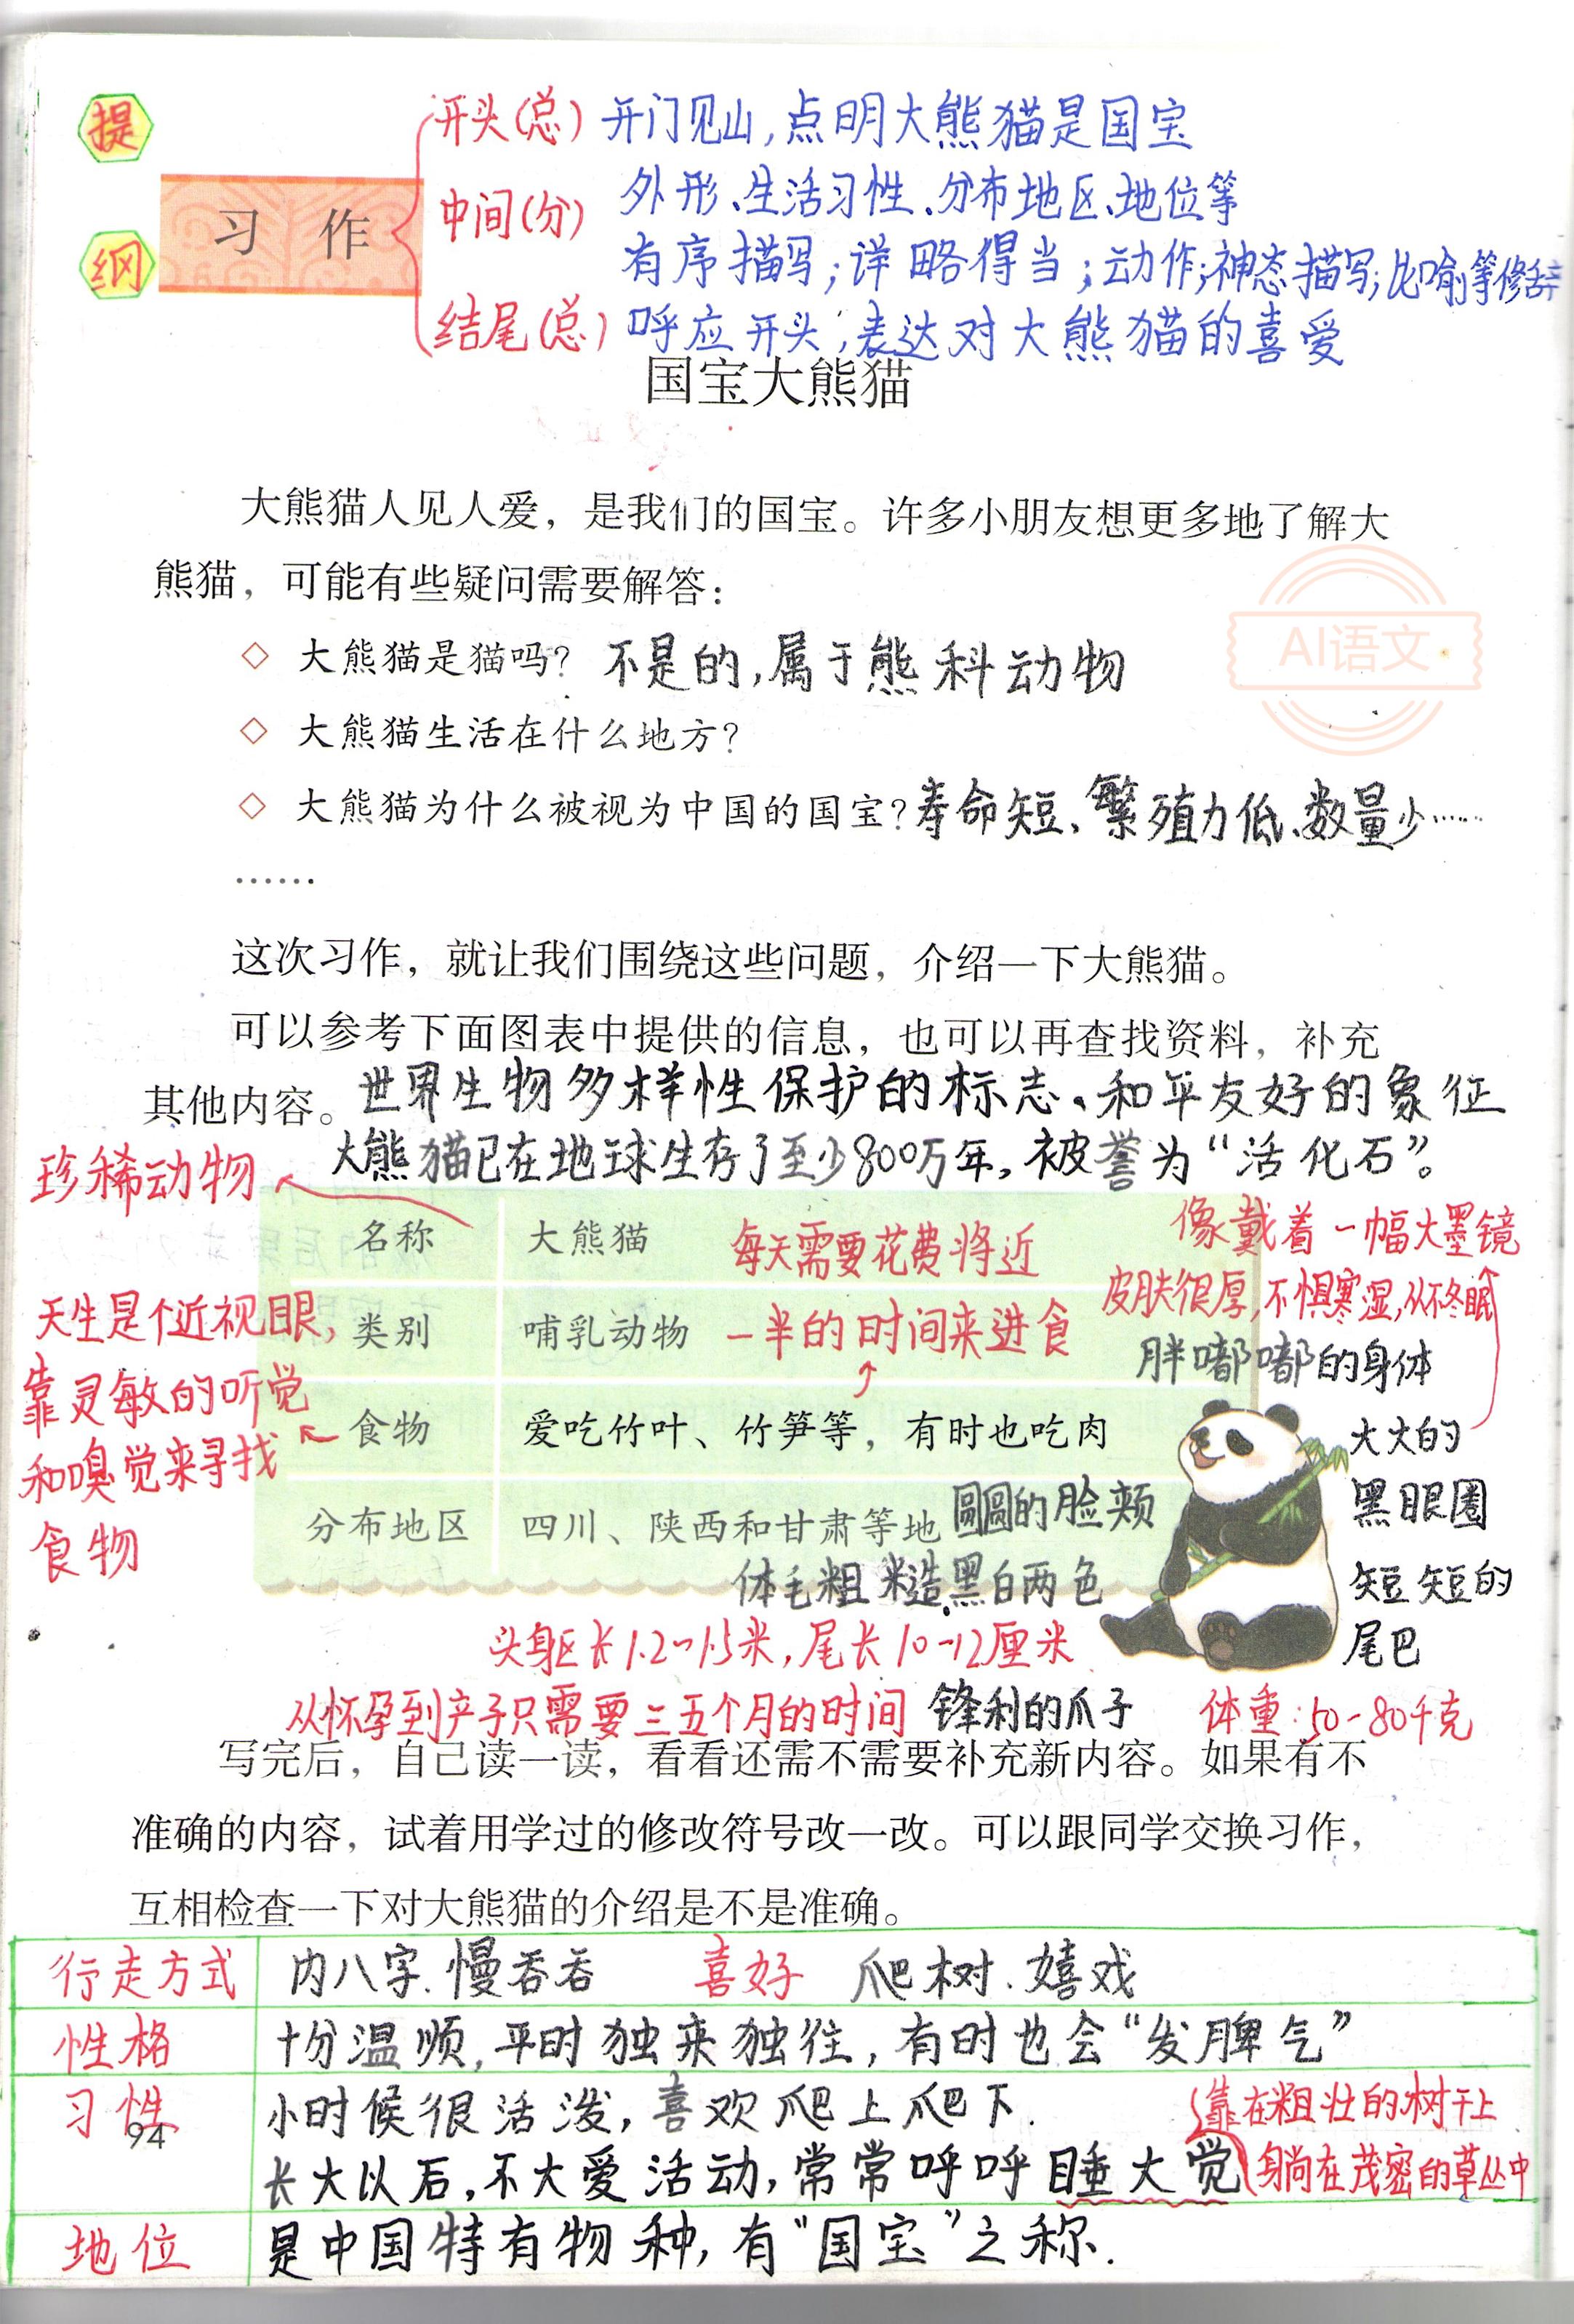 提
纲
习 作
开头(总) 开门见山,点明大熊猫是国宝
中间(分) 外形、生活习性、分布地区、地位等
有序描写;详略得当;动作;神态描写;比喻等修辞
结尾(总) 呼应开头,表达对大熊猫的喜爱
国宝大熊猫
大熊猫人见人爱，是我们的国宝。许多小朋友想更多地了解大
熊猫，可能有些疑问需要解答：
◇ 大熊猫是猫吗? 不是的,属于熊科动物
◇ 大熊猫生活在什么地方?
◇ 大熊猫为什么被视为中国的国宝? 寿命短、繁殖力低、数量少……
……
AI语文
这次习作，就让我们围绕这些问题，介绍一下大熊猫。
可以参考下面图表中提供的信息，也可以再查找资料，补充
其他内容。 世界生物多样性保护的标志、和平友好的象征
大熊猫已在地球生存了至少800万年,被誉为“活化石”。
珍稀动物
名称 大熊猫 每天需要花费将近
像戴着一幅大墨镜
天生是个近视眼,
类别 哺乳动物 一半的时间来进食
皮肤很厚,不惧寒湿,从不冬眠
胖嘟嘟的身体
靠灵敏的听觉
食物 爱吃竹叶、竹笋等，有时也吃肉
大大的
黑眼圈
和嗅觉来寻找
食物
分布地区 四川、陕西和甘肃等地 圆圆的脸颊
体毛粗糙.黑白两色
短短的
尾巴
头身长1.2~1.5米,尾长10~12厘米
从怀孕到产子只需要三五个月的时间 锋利的爪子 体重:50-80千克
写完后，自己读一读，看看还需不需要补充新内容。如果有不
准确的内容，试着用学过的修改符号改一改。可以跟同学交换习作，
互相检查一下对大熊猫的介绍是不是准确。
行走方式 内八字.慢吞吞 喜好 爬树.嬉戏
性格 十分温顺,平时独来独往,有时也会“发脾气”
习性 小时候很活泼,喜欢爬上爬下. 靠在粗壮的树干上
94
长大以后,不大爱活动,常常呼呼睡大觉 躺在茂密的草丛中
地位 是中国特有物种,有“国宝”之称.